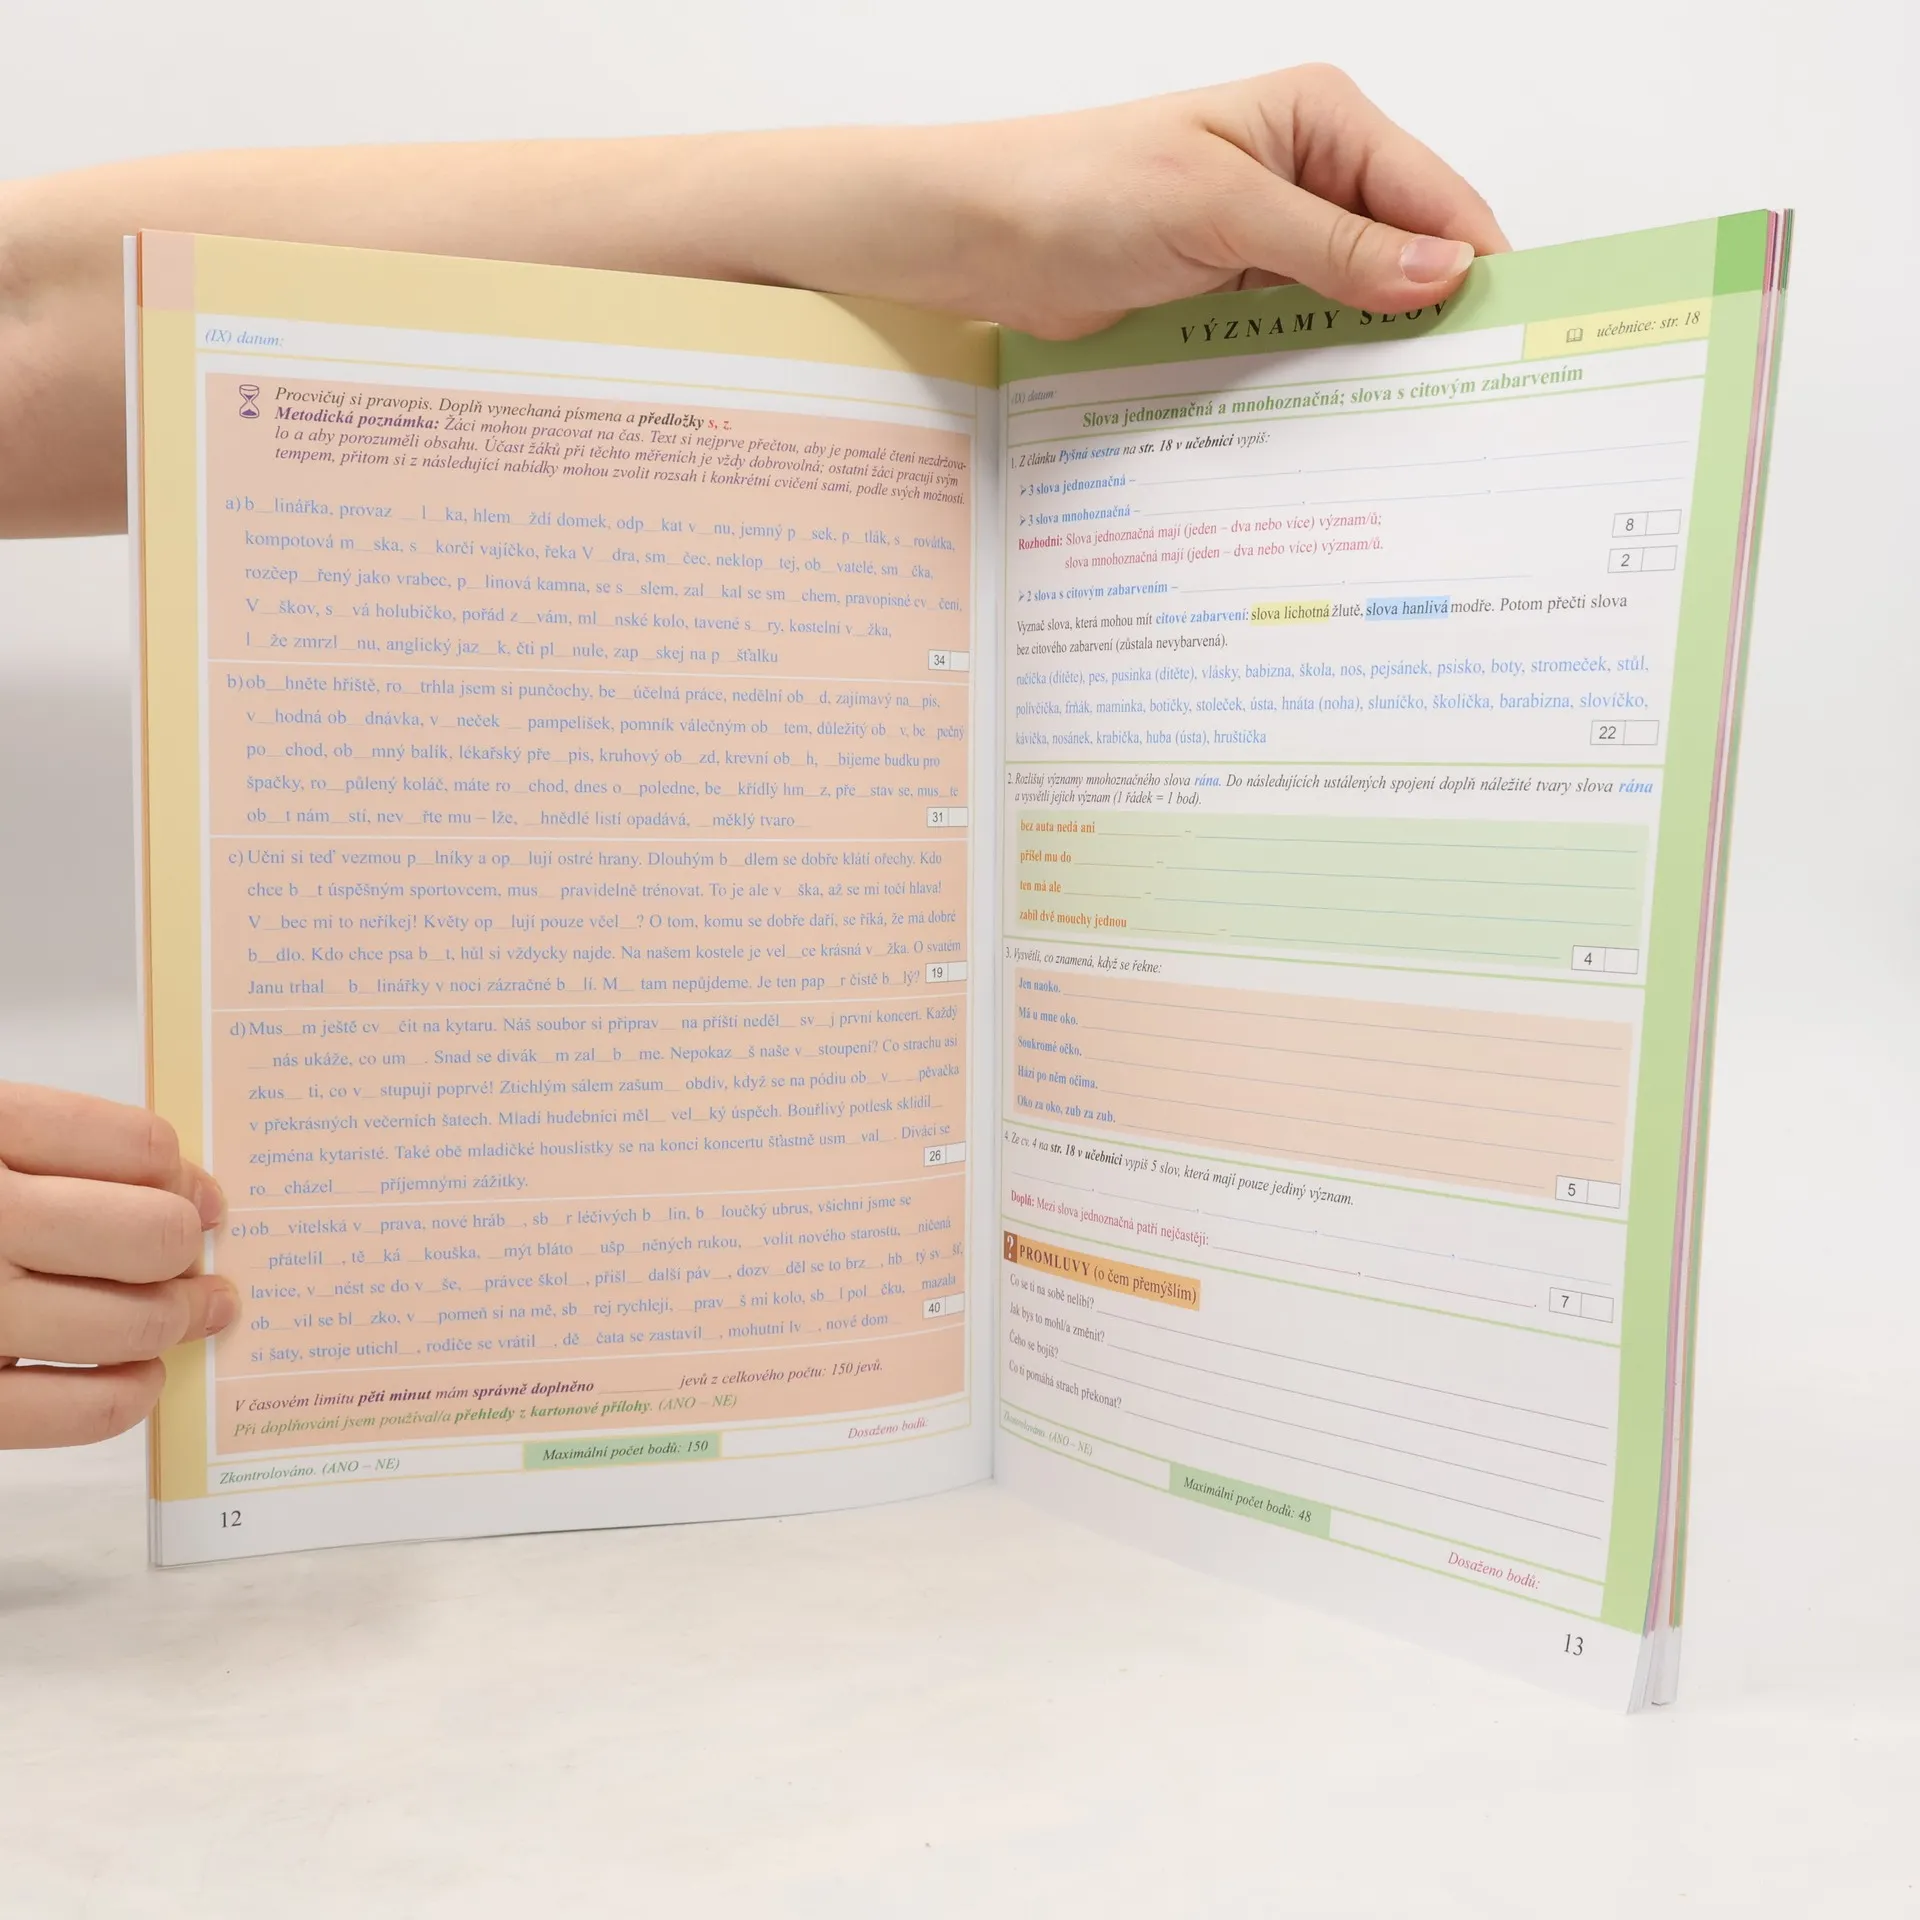 (IX) datum:
Procvičuj si pravopis. Doplň vynechaná písmena a předložky s, z.
Metodická poznámka: Žáci mohou pracovat na čas. Text si nejprve přečtou, aby je pomalé čtení nezdržova-
lo a aby porozuměli obsahu. Účast žáků při těchto měřeních je vždy dobrovolná; ostatní žáci pracují svým
tempem, přitom si z následující nabídky mohou zvolit rozsah i konkrétní cvičení sami, podle svých možností.
a) b__linářka, provaz __ l__ka, hlem__ždí domek, odp__kat v__nu, jemný p__sek, p__tlák, s__rovátka,
kompotová m__ska, s__korčí vajíčko, řeka V__dra, sm__čec, neklop__tej, ob__vatelé, sm__čka,
rozčep__řený jako vrabec, p__linová kamna, se s__slem, zal__kal se sm__chem, pravopisné cv__čení,
V__škov, s__vá holubičko, pořád z__vám, ml__nské kolo, tavené s__ry, kostelní v__žka,
l__že zmrzl__nu, anglický jaz__k, čti pl__nule, zap__skej na p__šťalku
34
b) ob__hněte hřiště, ro__trhla jsem si punčochy, be__účelná práce, nedělní ob__d, zajímavý na__pis,
v__hodná ob__dnávka, v__neček __ pampelišek, pomník válečným ob__tem, důležitý ob__v, be__pečný
po__chod, ob__mný balík, lékařský pře__pis, kruhový ob__zd, krevní ob__h, __bijeme budku pro
špačky, ro__půlený koláč, máte ro__chod, dnes o__poledne, be__křídlý hm__z, pře__stav se, mus__te
ob__t nám__stí, nev__řte mu – lže, __hnědlé listí opadává, __měklý tvaro__
31
c) Učni si teď vezmou p__lníky a op__lují ostré hrany. Dlouhým b__dlem se dobře klátí ořechy. Kdo
chce b__t úspěšným sportovcem, mus__ pravidelně trénovat. To je ale v__ška, až se mi točí hlava!
V__bec mi to neříkej! Květy op__lují pouze včel__? O tom, komu se dobře daří, se říká, že má dobré
b__dlo. Kdo chce psa b__t, hůl si vždycky najde. Na našem kostele je vel__ce krásná v__žka. O svatém
Janu trhal__ b__linářky v noci zázračné b__lí. M__ tam nepůjdeme. Je ten pap__r čistě b__lý?
19
d) Mus__m ještě cv__čit na kytaru. Náš soubor si připrav__ na příští neděl__ sv__j první koncert. Každý
__ nás ukáže, co um__. Snad se divák__m zal__b__me. Nepokaz__š naše v__stoupení? Co strachu asi
zkus__ ti, co v__stupují poprvé! Ztichlým sálem zašum__ obdiv, když se na pódiu ob__v__ pěvačka
v překrásných večerních šatech. Mladí hudebníci měl__ vel__ký úspěch. Bouřlivý potlesk sklidil__
zejména kytaristé. Také obě mladičké houslistky se na konci koncertu šťastně usm__val__. Diváci se
ro__cházel__ __ příjemnými zážitky.
26
e) ob__vitelská v__prava, nové hráb__, sb__r léčivých b__lin, b__loučký ubrus, všichni jsme se
__přátelil__, tě__ká __kouška, __mýt bláto __ ušp__něných rukou, __volit nového starostu, __ničená
lavice, v__nést se do v__še, __právce škol__, přišl__ další páv__, dozv__děl se to brz__, hb__tý sv__šť,
ob__vil se bl__zko, v__pomeň si na mě, sb__rej rychleji, __prav__š mi kolo, sb__l pol__čku, mazala
si šaty, stroje utichl__, rodiče se vrátil__, dě__čata se zastavil__, mohutní lv__, nové dom__
40
V časovém limitu pěti minut mám správně doplněno ________ jevů z celkového počtu: 150 jevů.
Při doplňování jsem používal/a přehledy z kartonové přílohy. (ANO – NE)
Zkontrolováno. (ANO – NE)
Maximální počet bodů: 150
Dosaženo bodů:
12
VÝZNAMY SLOV
učebnice: str. 18
(IX) datum:
Slova jednoznačná a mnohoznačná; slova s citovým zabarvením
1. Z článku Pyšná sestra na str. 18 v učebnici vypiš:
➢ 3 slova jednoznačná –
➢ 3 slova mnohoznačná –
8
Rozhodni: Slova jednoznačná mají (jeden – dva nebo více) význam/ů;
slova mnohoznačná mají (jeden – dva nebo více) význam/ů.
2
➢ 2 slova s citovým zabarvením –
Vyznač slova, která mohou mít citové zabarvení: slova lichotná žlutě, slova hanlivá modře. Potom přečti slova
bez citového zabarvení (zůstala nevybarvená).
ručička (dítěte), pes, pusinka (dítěte), vlásky, babizna, škola, nos, pejsánek, psisko, boty, stromeček, stůl,
polívčička, frňák, maminka, botičky, stoleček, ústa, hnáta (noha), sluníčko, školička, barabizna, slovíčko,
kávička, nosánek, krabička, huba (ústa), hruštička
22
2. Rozlišuj významy mnohoznačného slova rána. Do následujících ustálených spojení doplň náležité tvary slova rána
a vysvětli jejich význam (1 řádek = 1 bod).
bez auta nedá ani ________ –
přišel mu do ________ –
ten má ale ________ –
zabil dvě mouchy jednou ________ –
4
3. Vysvětli, co znamená, když se řekne:
Jen naoko.
Má u mne oko.
Soukromé očko.
Hází po něm očima.
Oko za oko, zub za zub.
5
4. Ze cv. 4 na str. 18 v učebnici vypiš 5 slov, která mají pouze jediný význam.
Doplň: Mezi slova jednoznačná patří nejčastěji:
7
? PROMLUVY (o čem přemýšlím)
Co se ti na sobě nelíbí?
Jak bys to mohl/a změnit?
Čeho se bojíš?
Co ti pomáhá strach překonat?
Zkontrolováno. (ANO – NE)
Maximální počet bodů: 48
Dosaženo bodů:
13